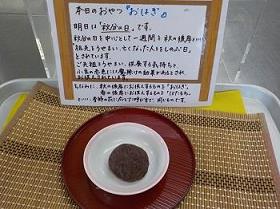 本日のおやつ『おはぎ』
明日は『秋分の日』です。
秋分の日を中心として一週間を秋の彼岸といい
祖先をうやまい、亡くなった人をしのぶ日。
とされています。
ご先祖をうやまい、供養する気持ちと
小豆の赤色には魔除けの効果があるとされ
ちなみに、秋の彼岸にお供えするものを『おはぎ』、
春の彼岸にお供えするものを『ぼたもち』